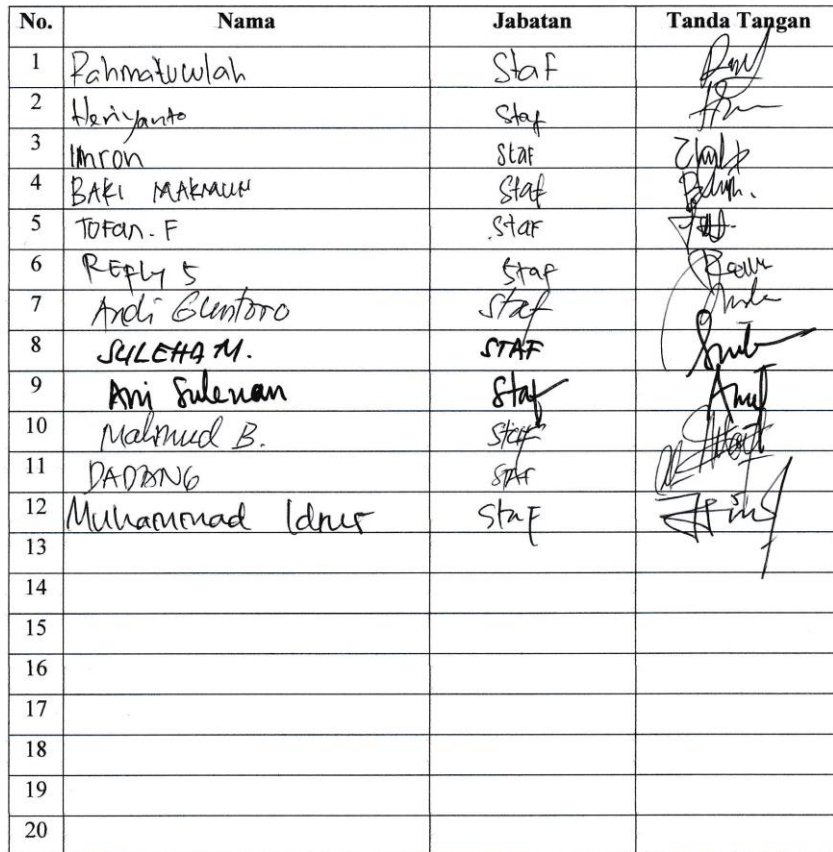 No. Nama Jabatan Tanda Tangan
1 Rahmatuwlah Staf
2 Heriyanto Staf
3 Imron Staf
4 BAKI MAKMUN Staf
5 TOFan. F Staf
6 REFLY S Staf
7 Andi Guntoro Staf
8 SULEHA M. STAF
9 Ani Suleman Staf
10 Mahmud B. Staf
11 DADANG STAF
12 Muhammad Idrus Staf
13
14
15
16
17
18
19
20